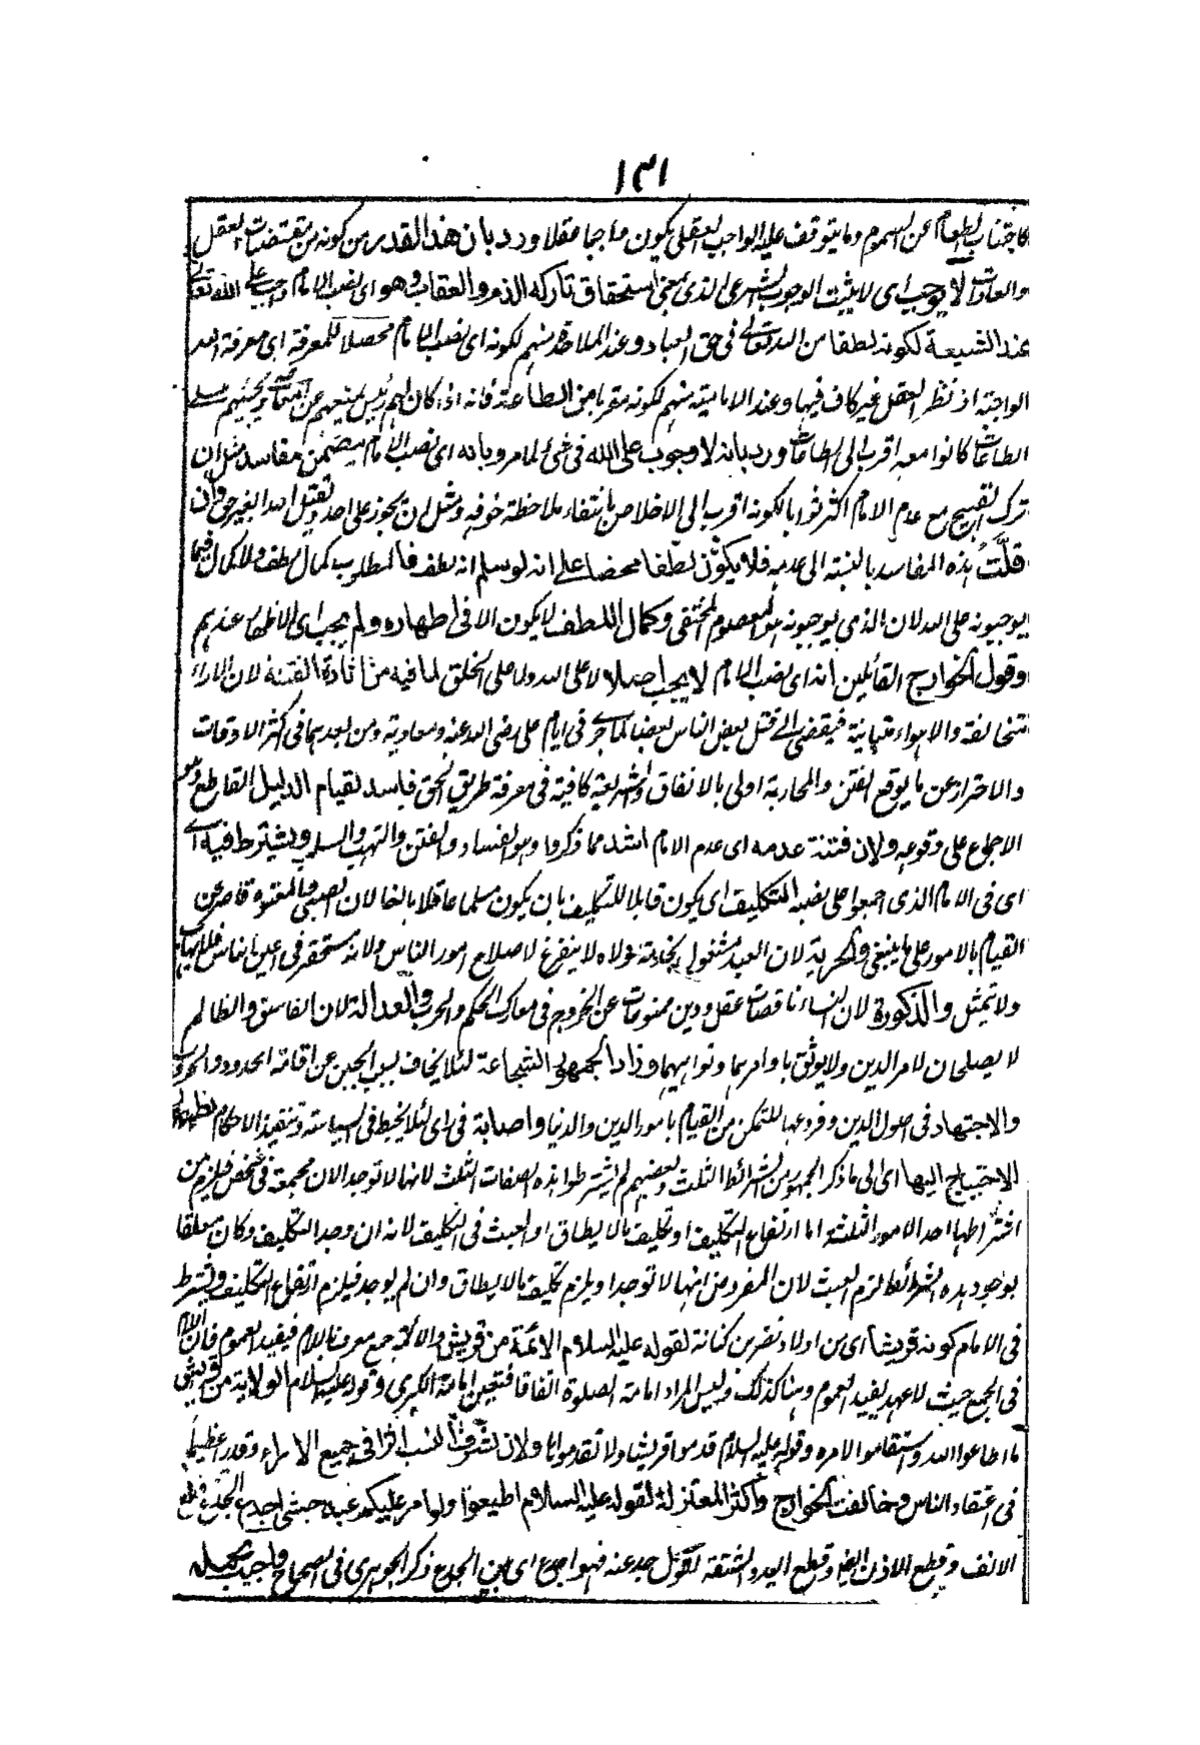 ١٣١
كاجتناب الطعام عن المسموم وما يتوقف عليه الواجب العقلى يكون واجبا عقلا ورد بان هذا القدر من كونه من مقتضيات العقل
والعادات لا يوجب اى لا يثبت الوجوب الشرعى الذى بمعنى استحقاق تاركه الذم والعقاب وهو اى نصب الامام واجب على الله تعالى
عند الشيعة لكونه لطفا من الله تعالى فى حق العباد وعند الملاحدة منهم لكونه اى نصب الامام محصلا للمعرفة اى معرفة الله
الواجبة اذ نظر العقل غير كاف فيها وعند الامامية منهم لكونه مقربا من الطاعة فانه اذا كان لهم رئيس يمنعهم عن ويحثهم على
الطاعات كانوا معه اقرب الى الطاعات ورد بانه لا وجوب على الله فى شئ كما مر وبانه اى نصب الامام يتضمن مفاسد مثل ان
ترك القبيح مع عدم الامام اكثر ثوابا لكونه اقرب الى الاخلاص بانتفاء ملاحظة خوفه ومثل ان يجوز على احد ويقتل احدا بغير حق وان
قلت هذه المفاسد بالنسبة الى عدمه فلا يكون لطفا محضا على انه لو سلم انه لطف فالمطلوب كمال لطف ولا كمال فيما
يوجبونه على الله لان الذى يوجبونه هو المعصوم المختفى وكمال اللطف لا يكون الا فى اظهاره ولم يجب اى الاظهار عندهم
وقول الخوارج القائلين انه اى نصب الامام لا يجب اصلا لا على الله ولا على الخلق لما فيه من اثارة الفتنة لان الاراء
متخالفة والاهواء متباينة فيفضى الى قتل بعض الناس بعضا كما جرى فى ايام على رضى الله عنه ومعاوية ومن بعدهما فى اكثر الاوقات
والاحتراز عن ما يوقع الفتن والمحاربة اولى بالاتفاق والشريعة كافية فى معرفة طريق الحق فاسد لقيام الدليل القاطع وهو
الاجماع على وقوعه ولان فتنة عدمه اى عدم الامام اشد مما ذكروا وهو الفساد والفتن والنهب والسلب ويشترط فيه اى
اى فى الامام الذى اجمعوا على نصبه التكليف اى يكون قابلا للتكليف بان يكون مسلما عاقلا بالغا لان الصبى والمعتوه قاصر عن
القيام بالامور على ما ينبغى والحرية لان العبد مشغول بخدمة مولاه لا يتفرغ لاصلاح امور الناس ولانه مستحقر فى اعين الناس فلا يهاب
ولا يمتثل والذكورة لان النساء ناقصات عقل ودين ممنوعات عن الخروج فى معارك الحكم والحرب والعدالة لان الفاسق والظالم
لا يصلحان لامر الدين ولا يوثق باوامرهما ونواهيهما وزاد الجمهور الشجاعة لئلا يخاف بسبب الجبن عن اقامة الحدود والحروب
والاجتهاد فى اصول الدين وفروعها للتمكن من القيام بامور الدين والدنيا واصابة فى راى لئلا يخبط فى السياسة وتنفيذ الاحكام لظهور
الاحتياج اليها اى الى ما ذكر الجمهور من الشرائط الثلث وبعضهم لم يشترطوا هذه الصفات الثلث لانها لا توجد الان مجمعة فى شخص فيلزم من
اشتراطها احد الامور الثلثة اما ارتفاع التكليف او تكليف بما لا يطاق او العبث فى التكليف لانه ان وجد التكليف وكان معلقا
بوجود هذه الشرائط لزم العبث لان المفروض انها لا توجد او يلزم تكليف بما لا يطاق وان لم يوجد فيلزم ارتفاع التكليف ويشترط
فى الامام كونه قريشا اى من اولاد نضر بن كنانة لقوله عليه السلام الائمة من قريش والائمة جمع معرف باللام فيفيد العموم فان اللام
فى الجمع حيث لا عهد يفيد العموم وهنا كذلك وليس المراد امامة الصلوة اتفاقا فتعين امامة الكبرى وقوله عليه السلام الولاية من قريش
ما اطاعوا الله واستقاموا لامره وقوله عليه السلام قدموا قريشا ولا تقدموها ولان لشرف النسب اثرا فى جميع الاراء وقدرا عظيما
فى اعتقاد الناس وخالفت الخوارج واكثر المعتزلة لقوله عليه السلام اطيعوا ولو امر عليكم عبد حبشى اجدع الجدع قطع
الانف وقطع الاذن ايضا وقطع اليد والشفة تقول جدعته فهو اجدع اى بين الجدع ذكره الجوهرى فى الصحاح واجيب بحمله